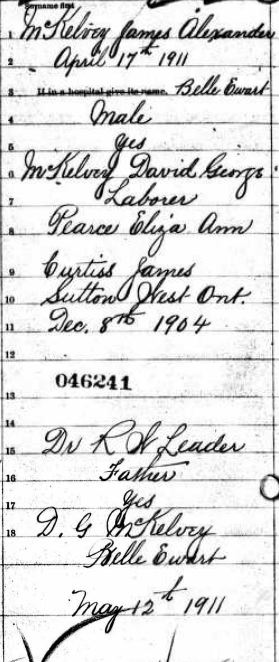 Surname first
1 McKelvey James Alexander
2 April 17th 1911
3 If in a hospital give its name. Belle Ewart
4 Male
5 Yes
6 McKelvey David George
7 Laborer
8 Pearce Eliza Ann
9 Curtiss James
10 Sutton West Ont.
11 Dec. 8th 1904
12
13 046241
14
15 Dr R W Leader
16 Father
17 Yes
18 D. G McKelvey
Belle Ewart
May 12th 1911